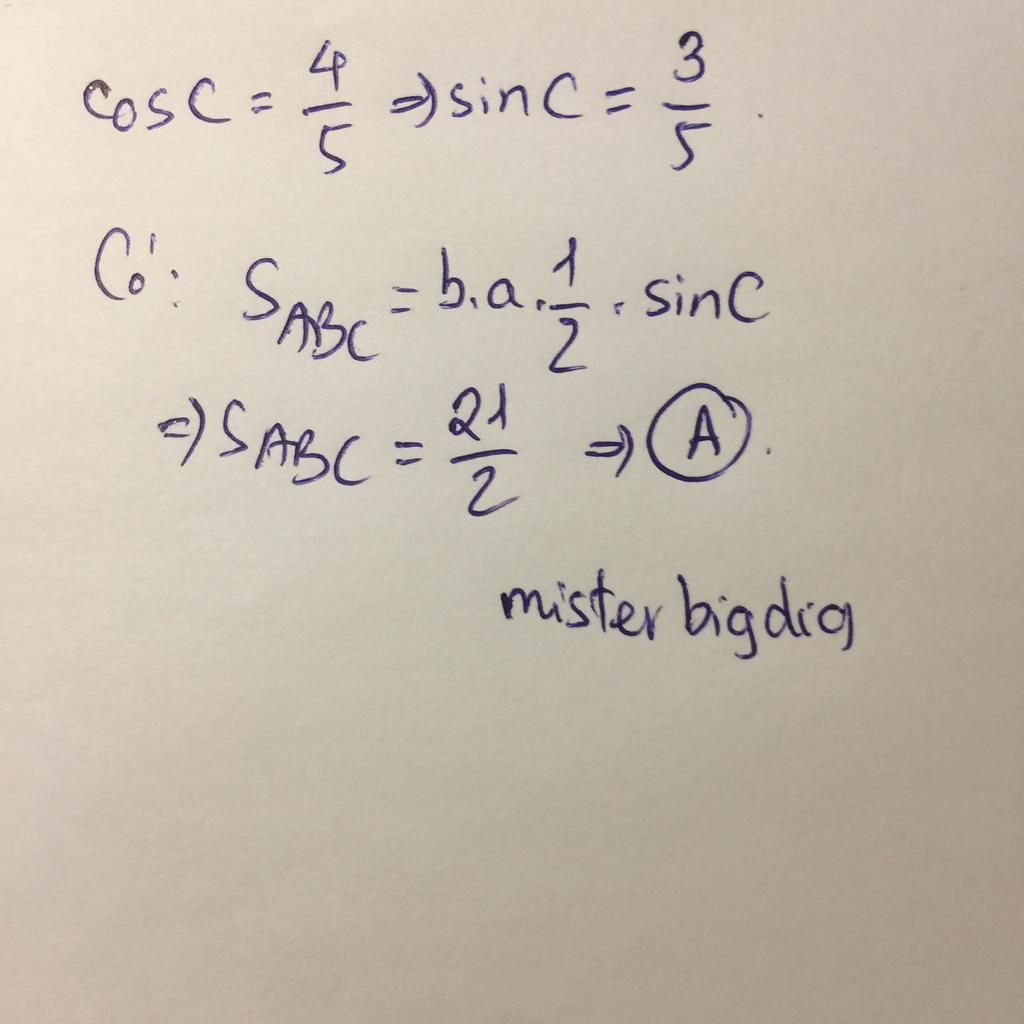 cosC = 4/5 ⇒ sinC = 3/5.
Có: S_ABC = b.a.1/2.sinC
⇒ S_ABC = 21/2 ⇒ A.
mister